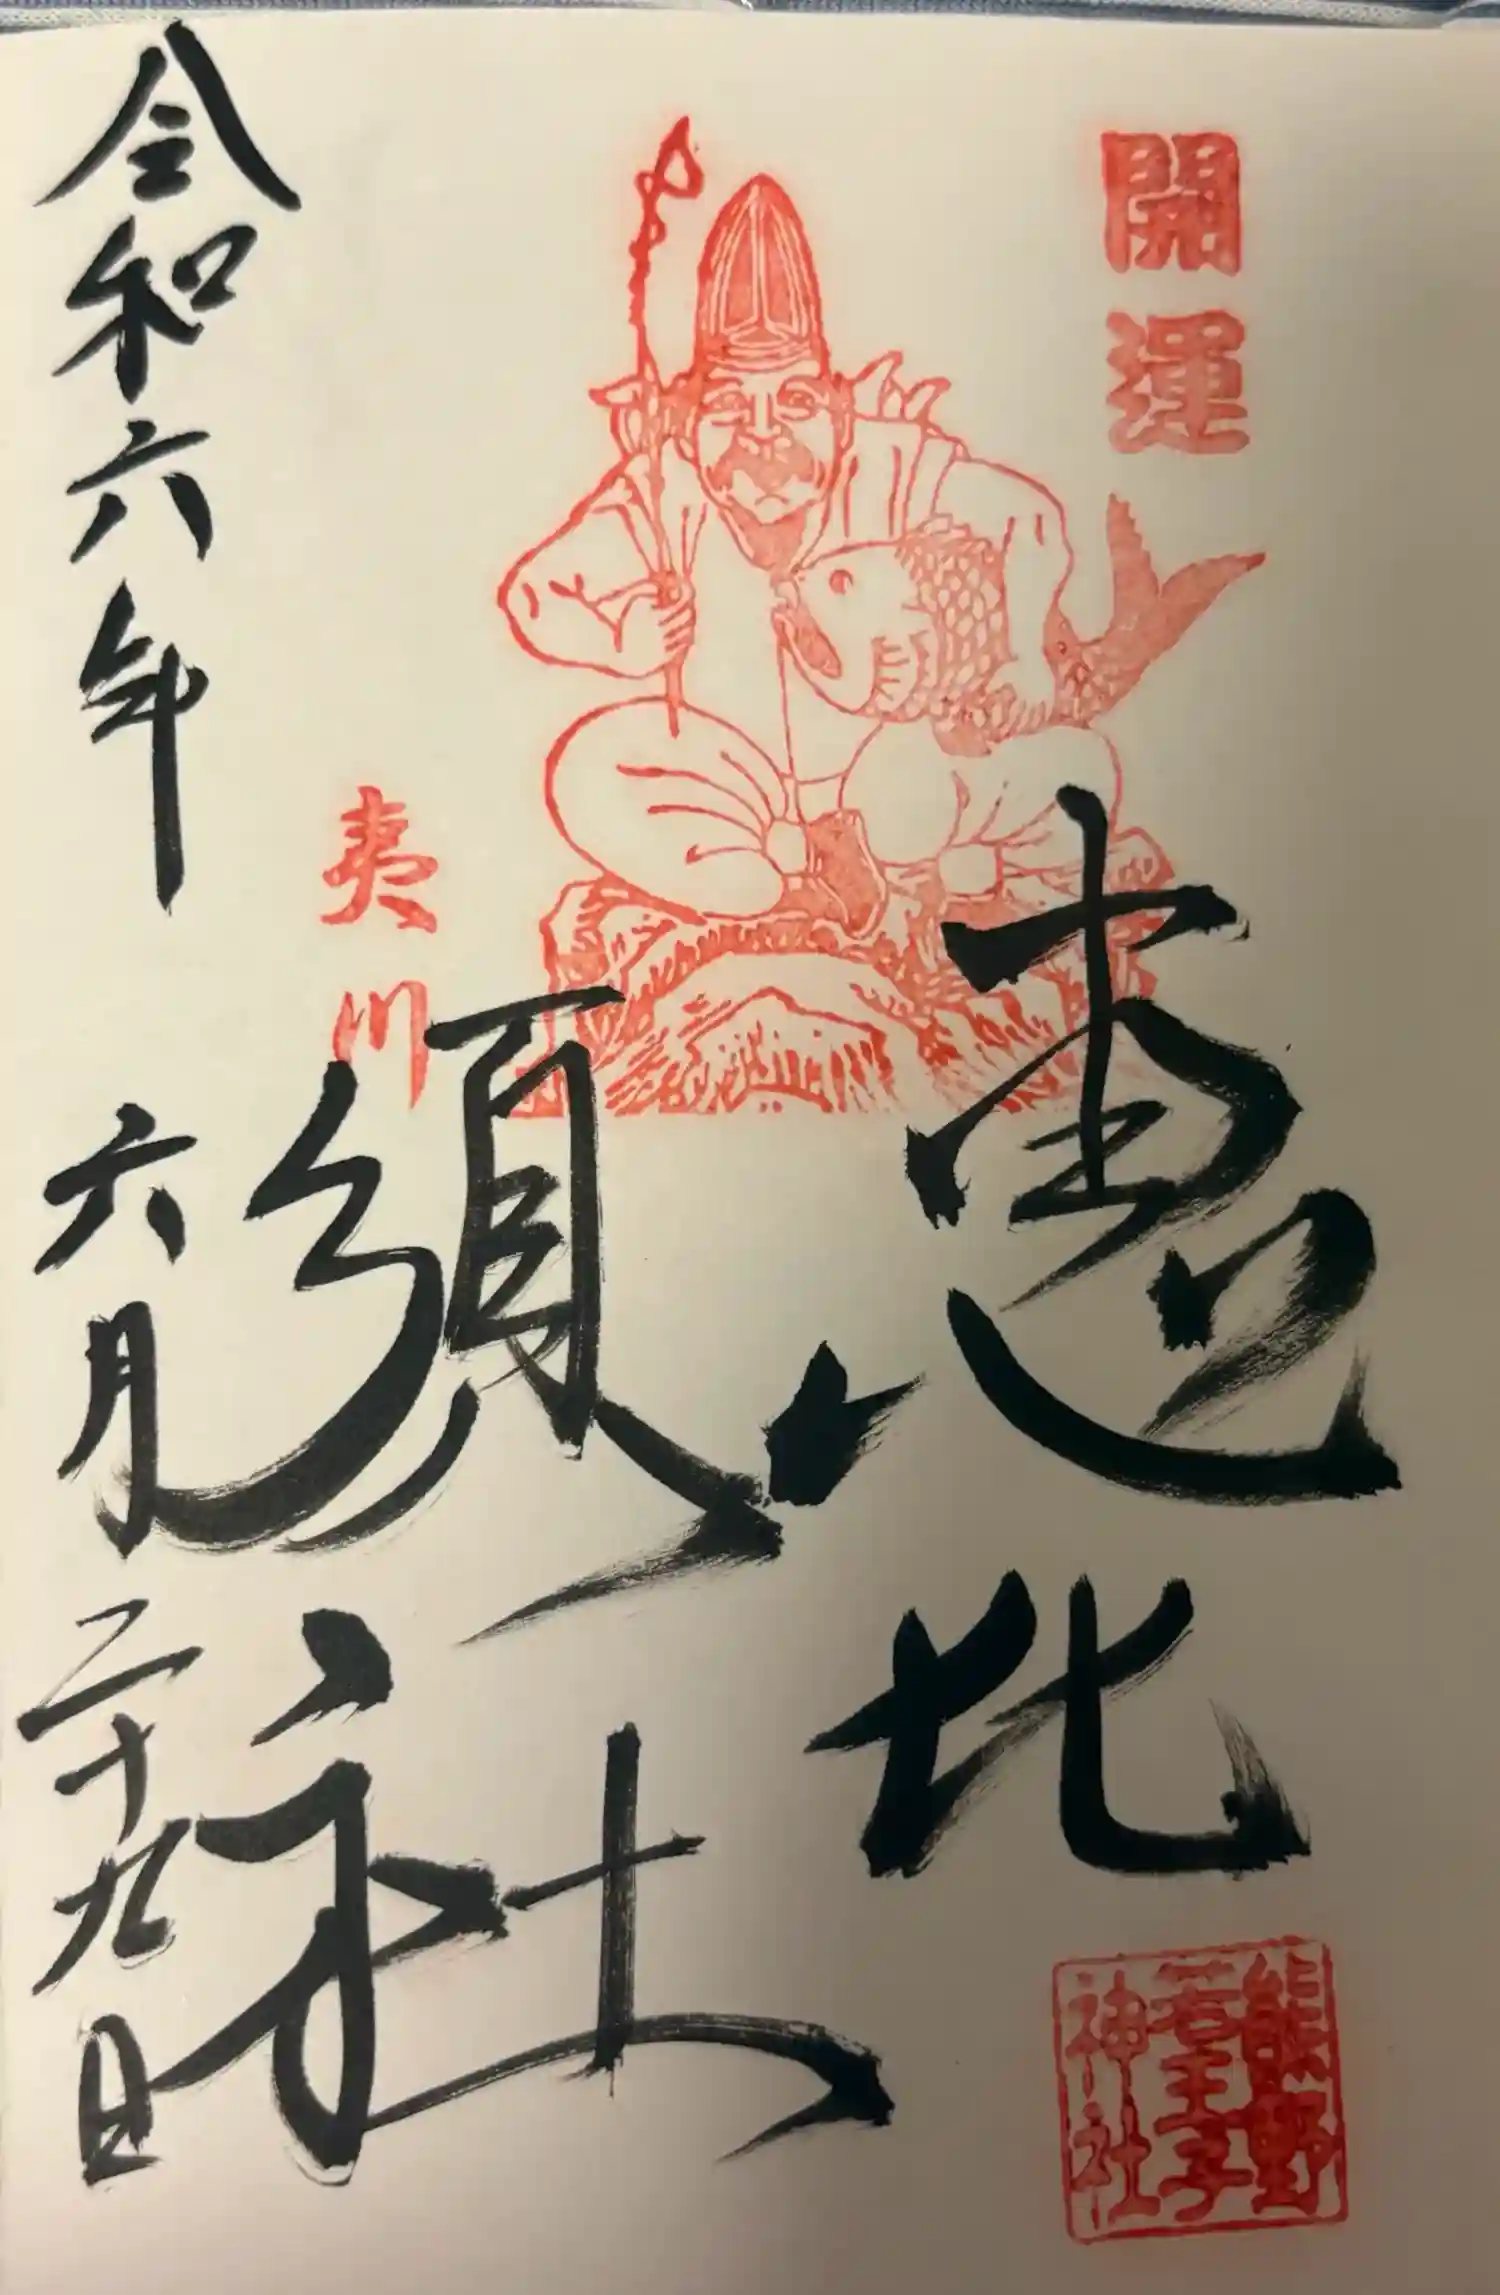 開運
恵比
須社
夷川
令和六年 六月二十九日
熊野
若王子
神社